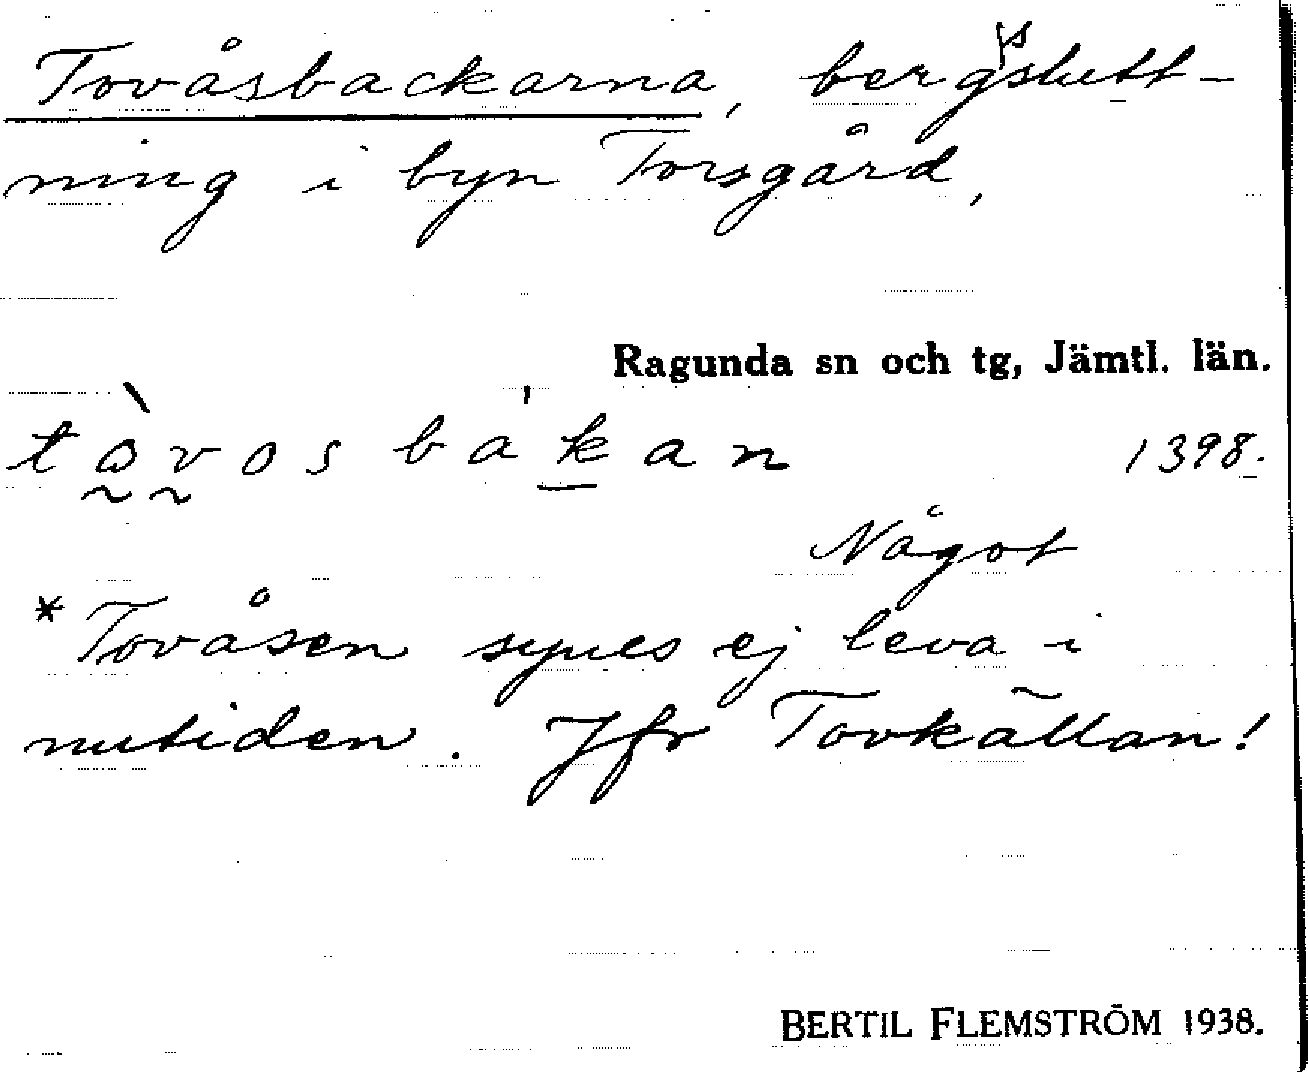 Tovåsbackarna, bergsslutt-
ning i byn Torsgård,
Ragunda sn och tg, Jämtl. län.
tòvosbákan 1398.
Något
*Tovåsen synes ej leva i
nutiden. Jfr Tovkällan!
BERTIL FLEMSTRÖM 1938.